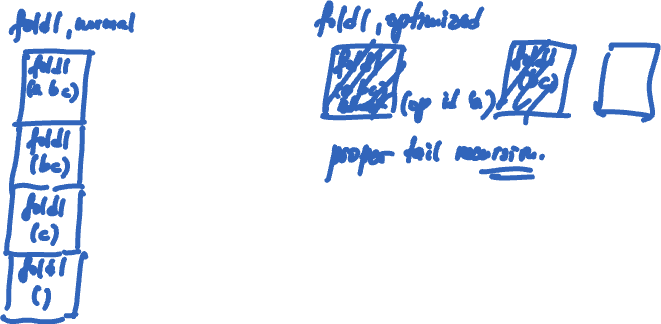 foldl, normal
foldl
(a b c)
foldl
(bc)
foldl
(c)
foldl
()
foldl, optimized
foldl
(op id a)
foldl
(bc)
proper tail recursion.